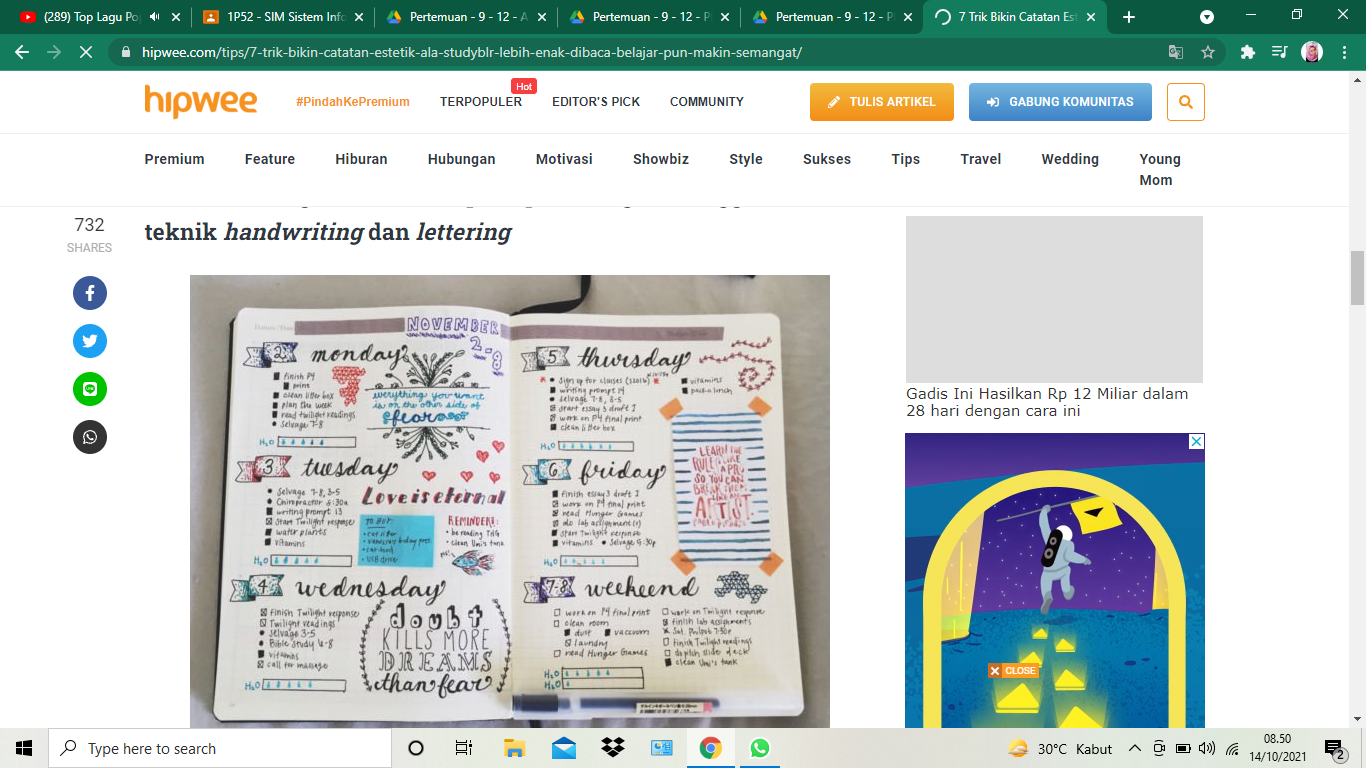 (289) Top Lagu Po
1P52 - SIM Sistem Info
Pertemuan - 9 - 12 - A
Pertemuan - 9 - 12 - P
Pertemuan - 9 - 12 - P
7 Trik Bikin Catatan Est
hipwee.com/tips/7-trik-bikin-catatan-estetik-ala-studyblr-lebih-enak-dibaca-belajar-pun-makin-semangat/
hipwee
#PindahKePremium
TERPOPULER
Hot
EDITOR'S PICK
COMMUNITY
TULIS ARTIKEL
GABUNG KOMUNITAS
Premium Feature Hiburan Hubungan Motivasi Showbiz Style Sukses Tips Travel Wedding Young
Mom
732
SHARES
teknik handwriting dan lettering
NOVEMBER
2-8
2 monday
finish P4
print
clean litter box
plan the week
read twilight readings
selvage 7-8
H2O
everything you want
is on the other side of
fear
3 tuesday
Selvage 7-8, 3-5
Chiropractor 6:30a
writing prompt 13
Start Twilight response
water plants
vitamins
H2O
Love is eternal
TO BUY:
cat litter
cat food
USB drive
REMINDERS:
be reading THG
clean Umi's tank
4 wednesday
finish Twilight response
Twilight readings
selvage 3-5
Bible Study 6-8
vitamins
call for massage
H2O
doubt
KILLS MORE
DREAMS
than fear
5 thursday
sign up for classes (S2016)
writing prompt 14
selvage 7-8, 3-5
start essay 3 draft 1
work on P4 final print
clean litter box
vitamins
pack a lunch
H2O
6 friday
finish essay 3 draft 1
work on P4 final print
read Hunger Games
do lab assignment(s)
start Twilight response
vitamins
Selvage 5:30p
H2O
LEARN THE
RULES LIKE
A PRO
SO YOU CAN
BREAK THEM
LIKE AN
ARTIST
PABLO PICASSO
7-8 weekend
work on P4 final print
clean room
dust vaccuum
laundry
read Hunger Games
work on Twilight response
finish lab assignments
Sat. Philpot 7:30p
finish Twilight readings
clean Umi's tank
H2O
H2O
Gadis Ini Hasilkan Rp 12 Miliar dalam
28 hari dengan cara ini
CLOSE
Type here to search
30°C Kabut
08.50
14/10/2021
2